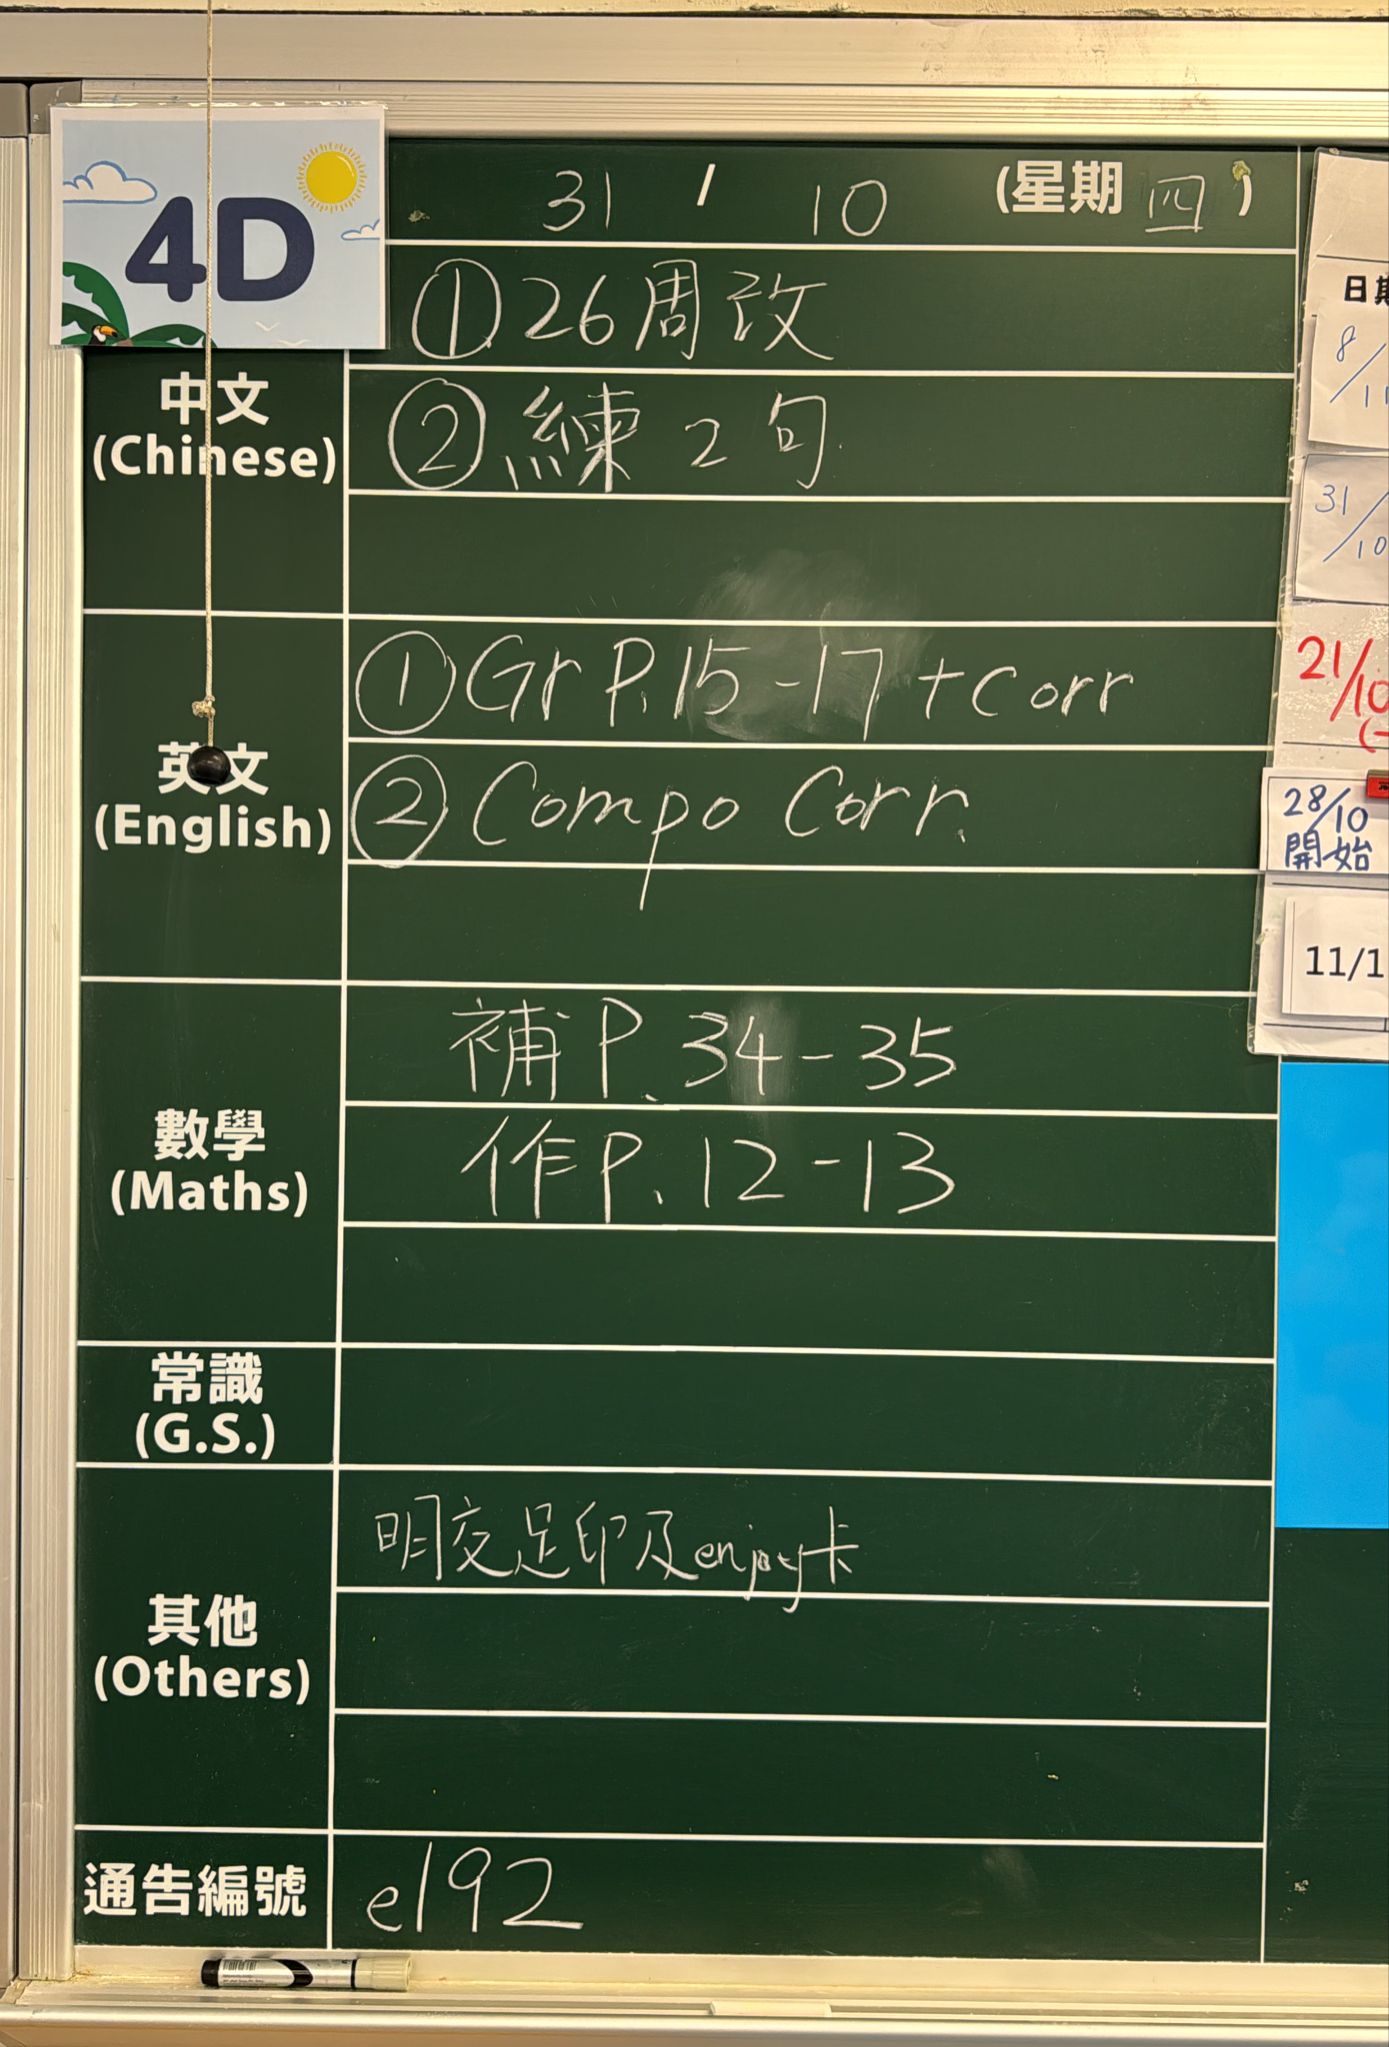 4D
31 / 10 (星期四)
①26周改
中文
(Chinese)
②練2句
①Gr P.15-17+Corr
英文
(English)
②Compo Corr.
數學
(Maths)
補P.34-35
作P.12-13
常識
(G.S.)
其他
(Others)
明交足印及enjoy卡
通告編號
e192
8/11
31/10
21/10
28/10
開始
11/1